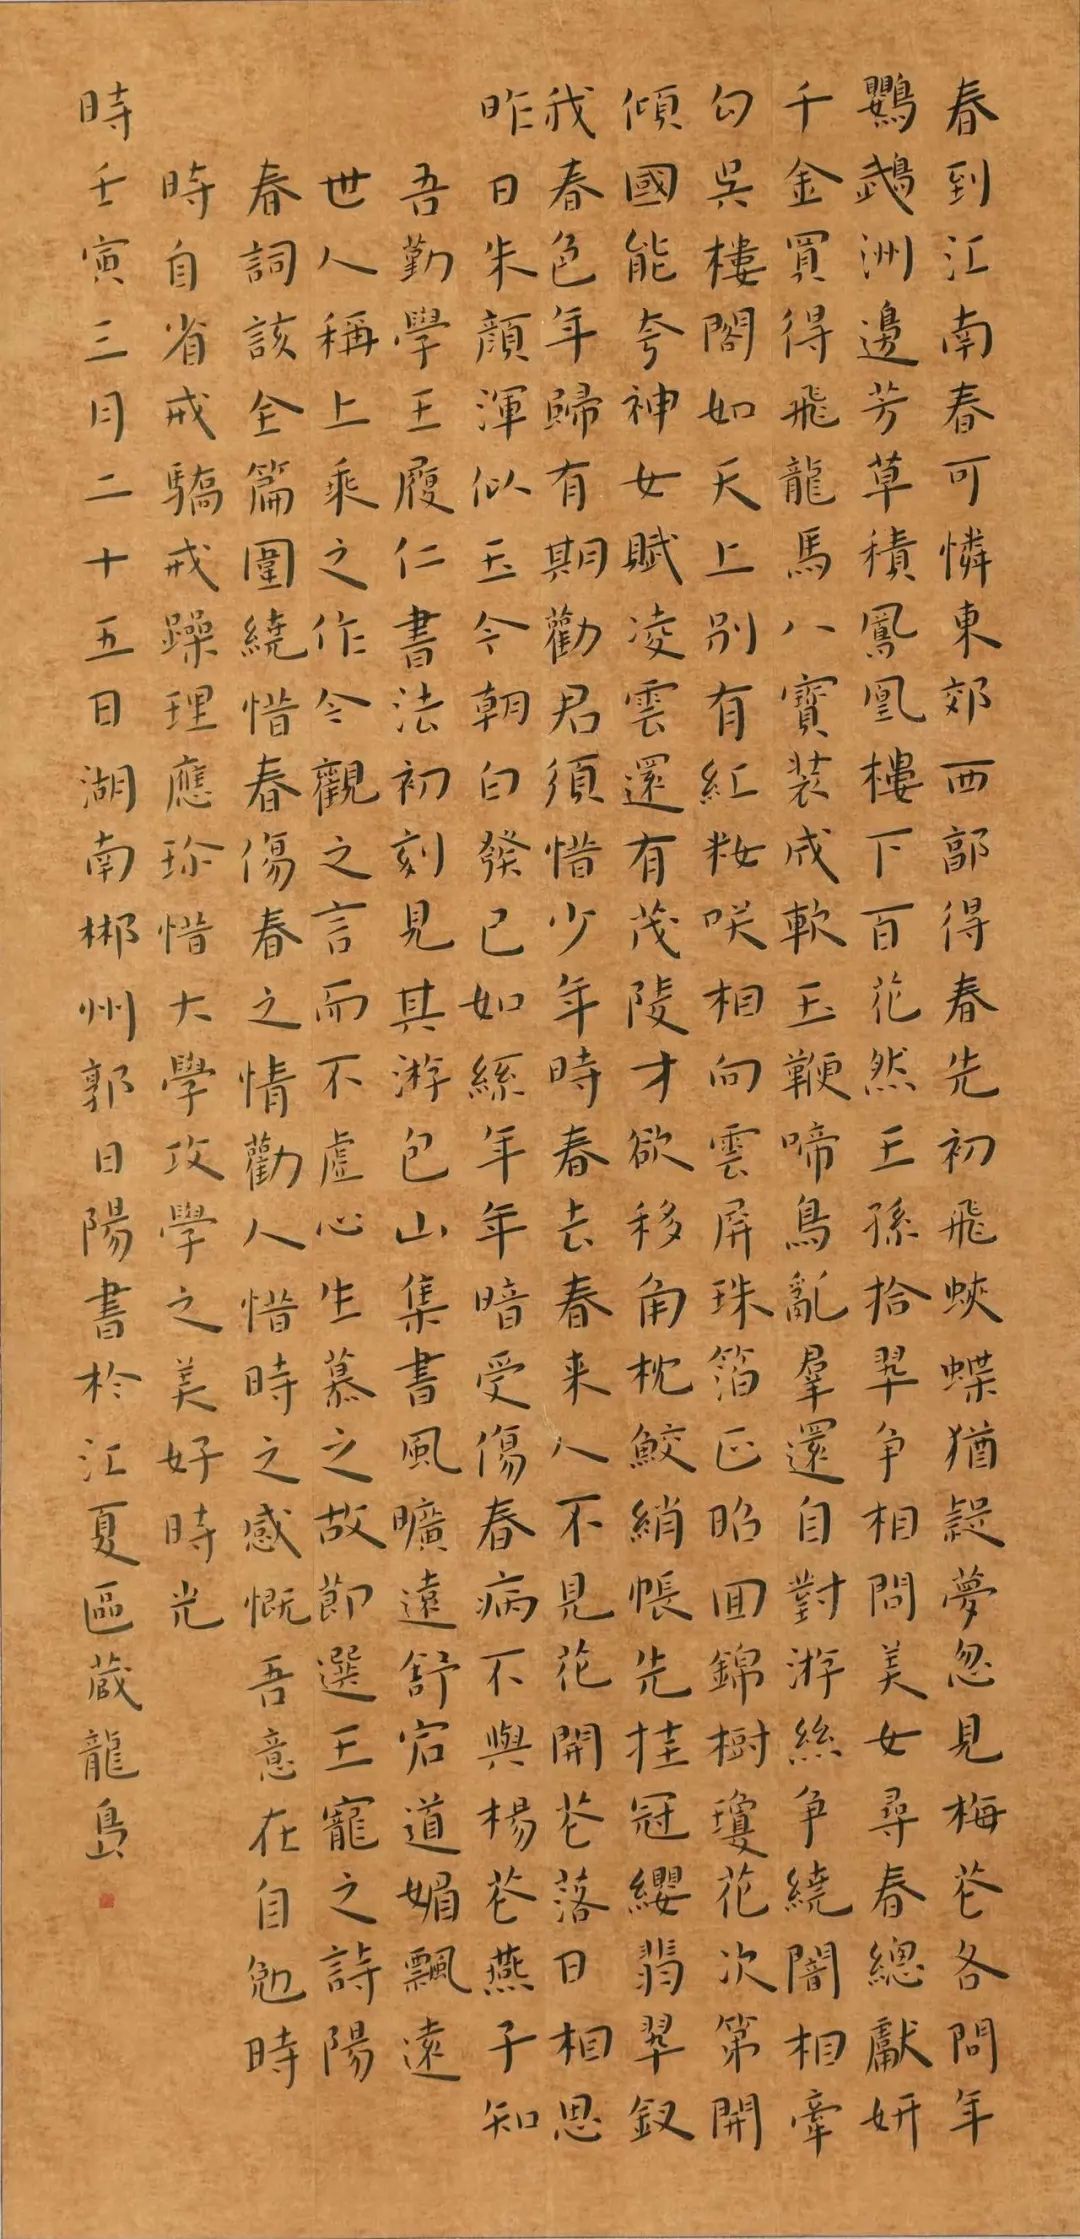 春到江南春可憐東郊西郭得春先初飛蛺蝶猶疑夢忽見梅花各問年
鸚鵡洲邊芳草積鳳凰樓下百花然王孫拾翠争相問美女尋春總獻妍
千金買得飛龍馬八寶装成軟玉鞭啼鳥亂羣還自對游絲争繞闇相牽
勾吳樓閣如天上別有紅粧咲相向雲屏珠箔正昭回錦樹瓊花次第開
傾國能夸神女賦凌雲還有茂陵才欲移角枕鮫綃帳先挂冠纓翡翠釵
我春色年歸有期勸君須惜少年時春去春来人不見花開花落日相思
昨日朱顏渾似玉今朝白發已如絲年年暗受傷春病不與楊花燕子知
吾勤學王履仁書法初刻見其游包山集書風曠遠舒宕道媚飄遠
世人稱上乘之作今觀之言而不虛心生慕之故節選王寵之詩陽
春詞該全篇圍繞惜春傷春之情勸人惜時之感慨吾意在自勉時
時自省戒驕戒躁理應珍惜大學攻學之美好時光
時壬寅三月二十五日湖南郴州郭日陽書於江夏區藏龍島